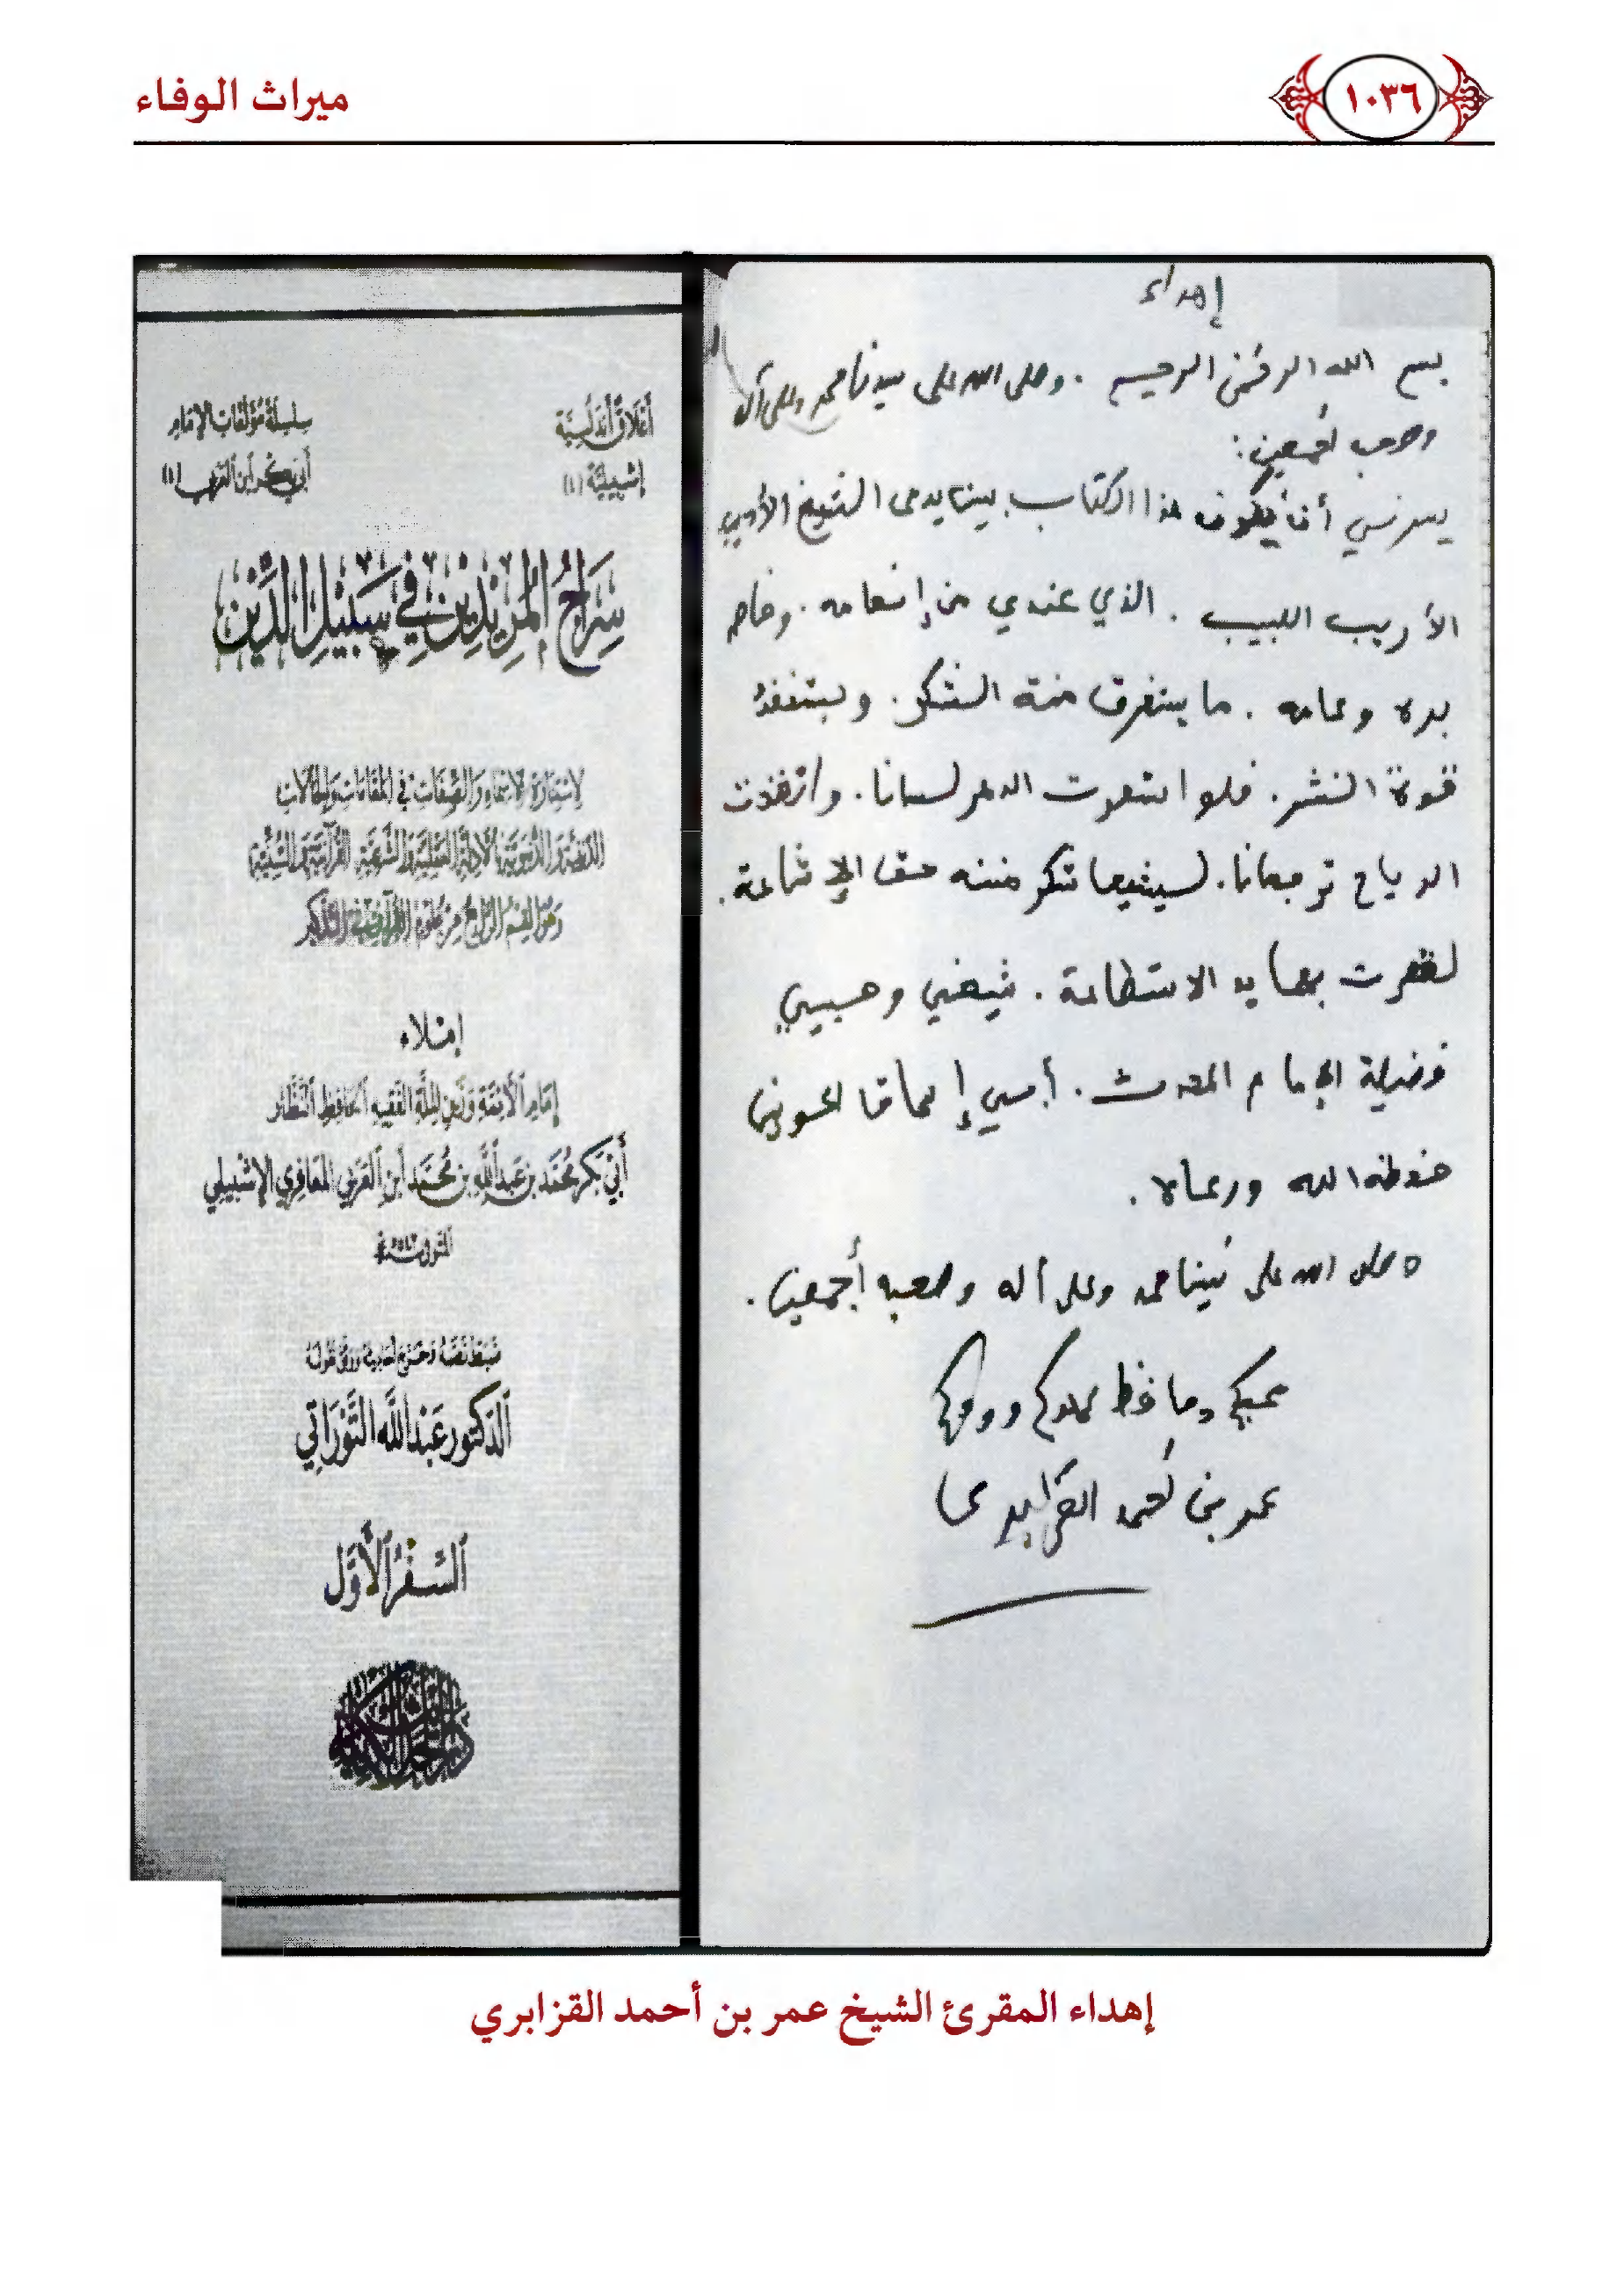 ١٠٣٦
ميراث الوفاء
إهداء
بسم الله الرحمن الرحيم . وصلى الله على سيدنا محمد وعلى آله
وصحبه أجمعين:
يسرني أن يكون هذا الكتاب بين يدي الشيخ الأديب
الأريب اللبيب . الذي عندي من إنعامه . وخاص
بره وعامه . ما يستغرق منة الشكر . ويستنفذ
قوة النشر . فلو استعرت الدهر لسانا . واتخذت
الرياح ترجمانا . ليشيعا شكر مننه حق الإشاعة .
لقصرت بهما يد الاستطاعة . شيخي وحبيبي
فضيلة الإمام المحدث .
حفظه الله ورعاه .
وصلى الله على نبينا محمد وعلى آله وصحبه أجمعين .
محبكم وحافظ عهدكم وودكم
عمر بن أحمد القزابري
أعلاق أندلسية
إشبيلية (١)
سلسلة مؤلفات الإمام
أبي بكر ابن العربي (١)
سراج المريدين في سبيل الدين
لاستنارة الأسماء والصفات في المقامات والحالات
الدينية والدنيوية بالأدلة العقلية والشرعية القرآنية والسنية
وهو القسم الرابع من علوم القرآن في التذكير
إملاء
إمام الأئمة وزين الملة الفقيه الحافظ النظار
أبي بكر محمد بن عبد الله بن محمد ابن العربي المعافري الإشبيلي
ضبط نصه وخرج أحاديثه ووثق نقوله
الدكتور عبد الله التوراتي
السفر الأول
إهداء المقرئ الشيخ عمر بن أحمد القزابري